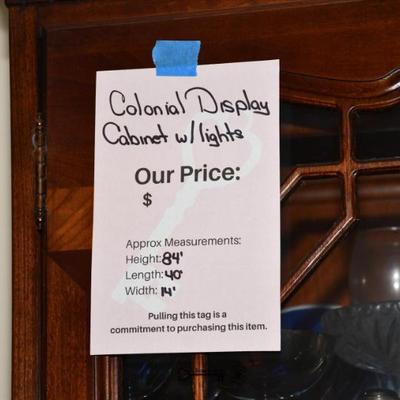 Colonial Display
Cabinet w/lights
Our Price:
$
Approx Measurements:
Height: 84'
Length: 40'
Width: 14'
Pulling this tag is a
commitment to purchasing this item.